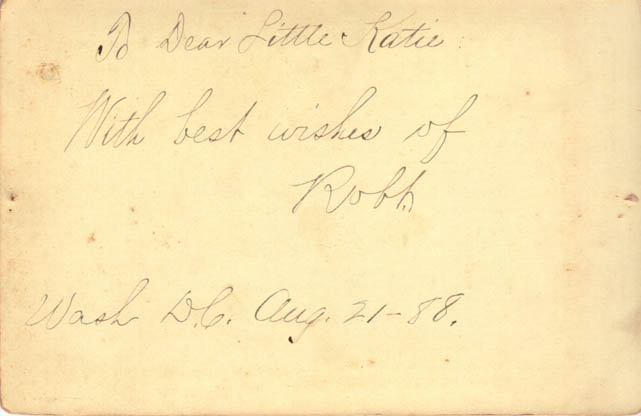 To Dear Little Katie.
With best wishes of
Robt.
Wash D.C. Aug. 21-88.